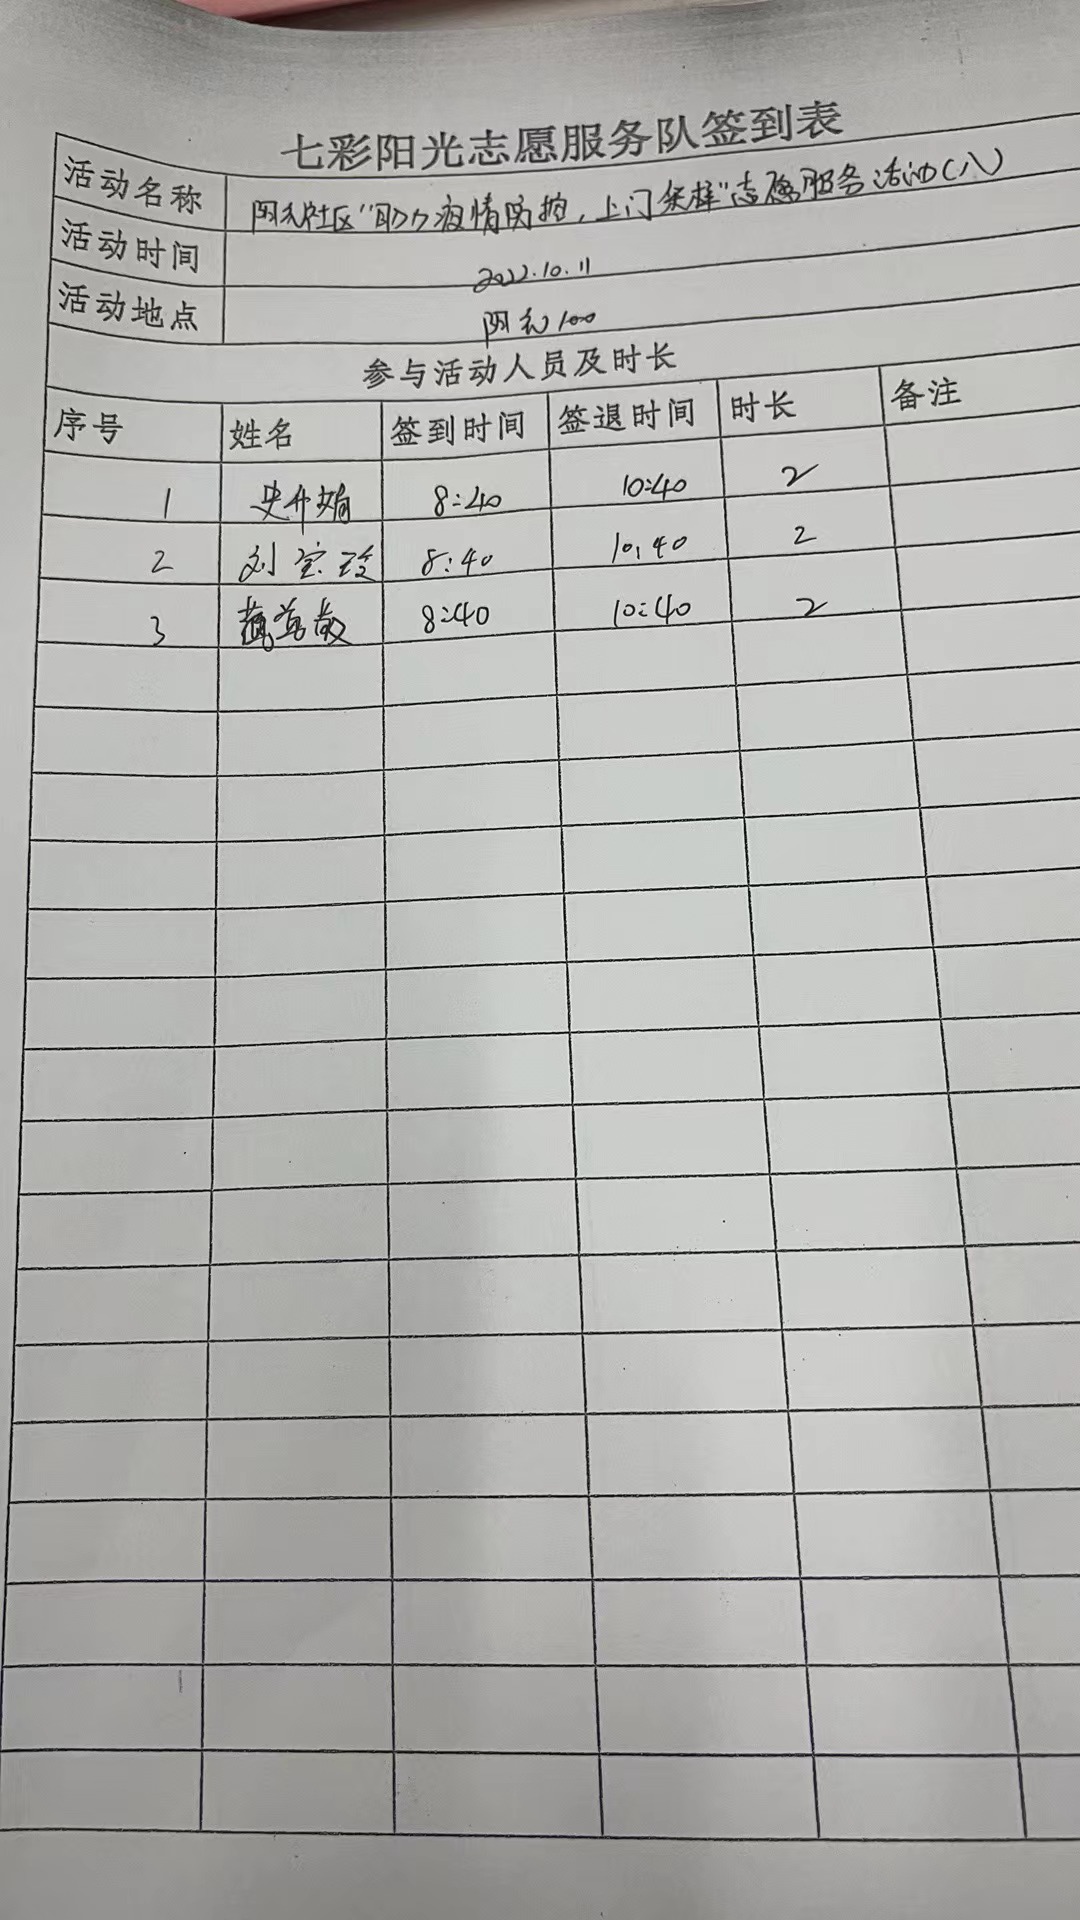 七彩阳光志愿服务队签到表
活动名称 阳光社区"助力疫情防控，上门采样"志愿服务活动(八)
活动时间 2022.10.11
活动地点 阳光100
参与活动人员及时长
序号 姓名 签到时间 签退时间 时长 备注
1 史升娟 8:40 10:40 2
2 刘宝玲 8:40 10:40 2
3 8:40 10:40 2